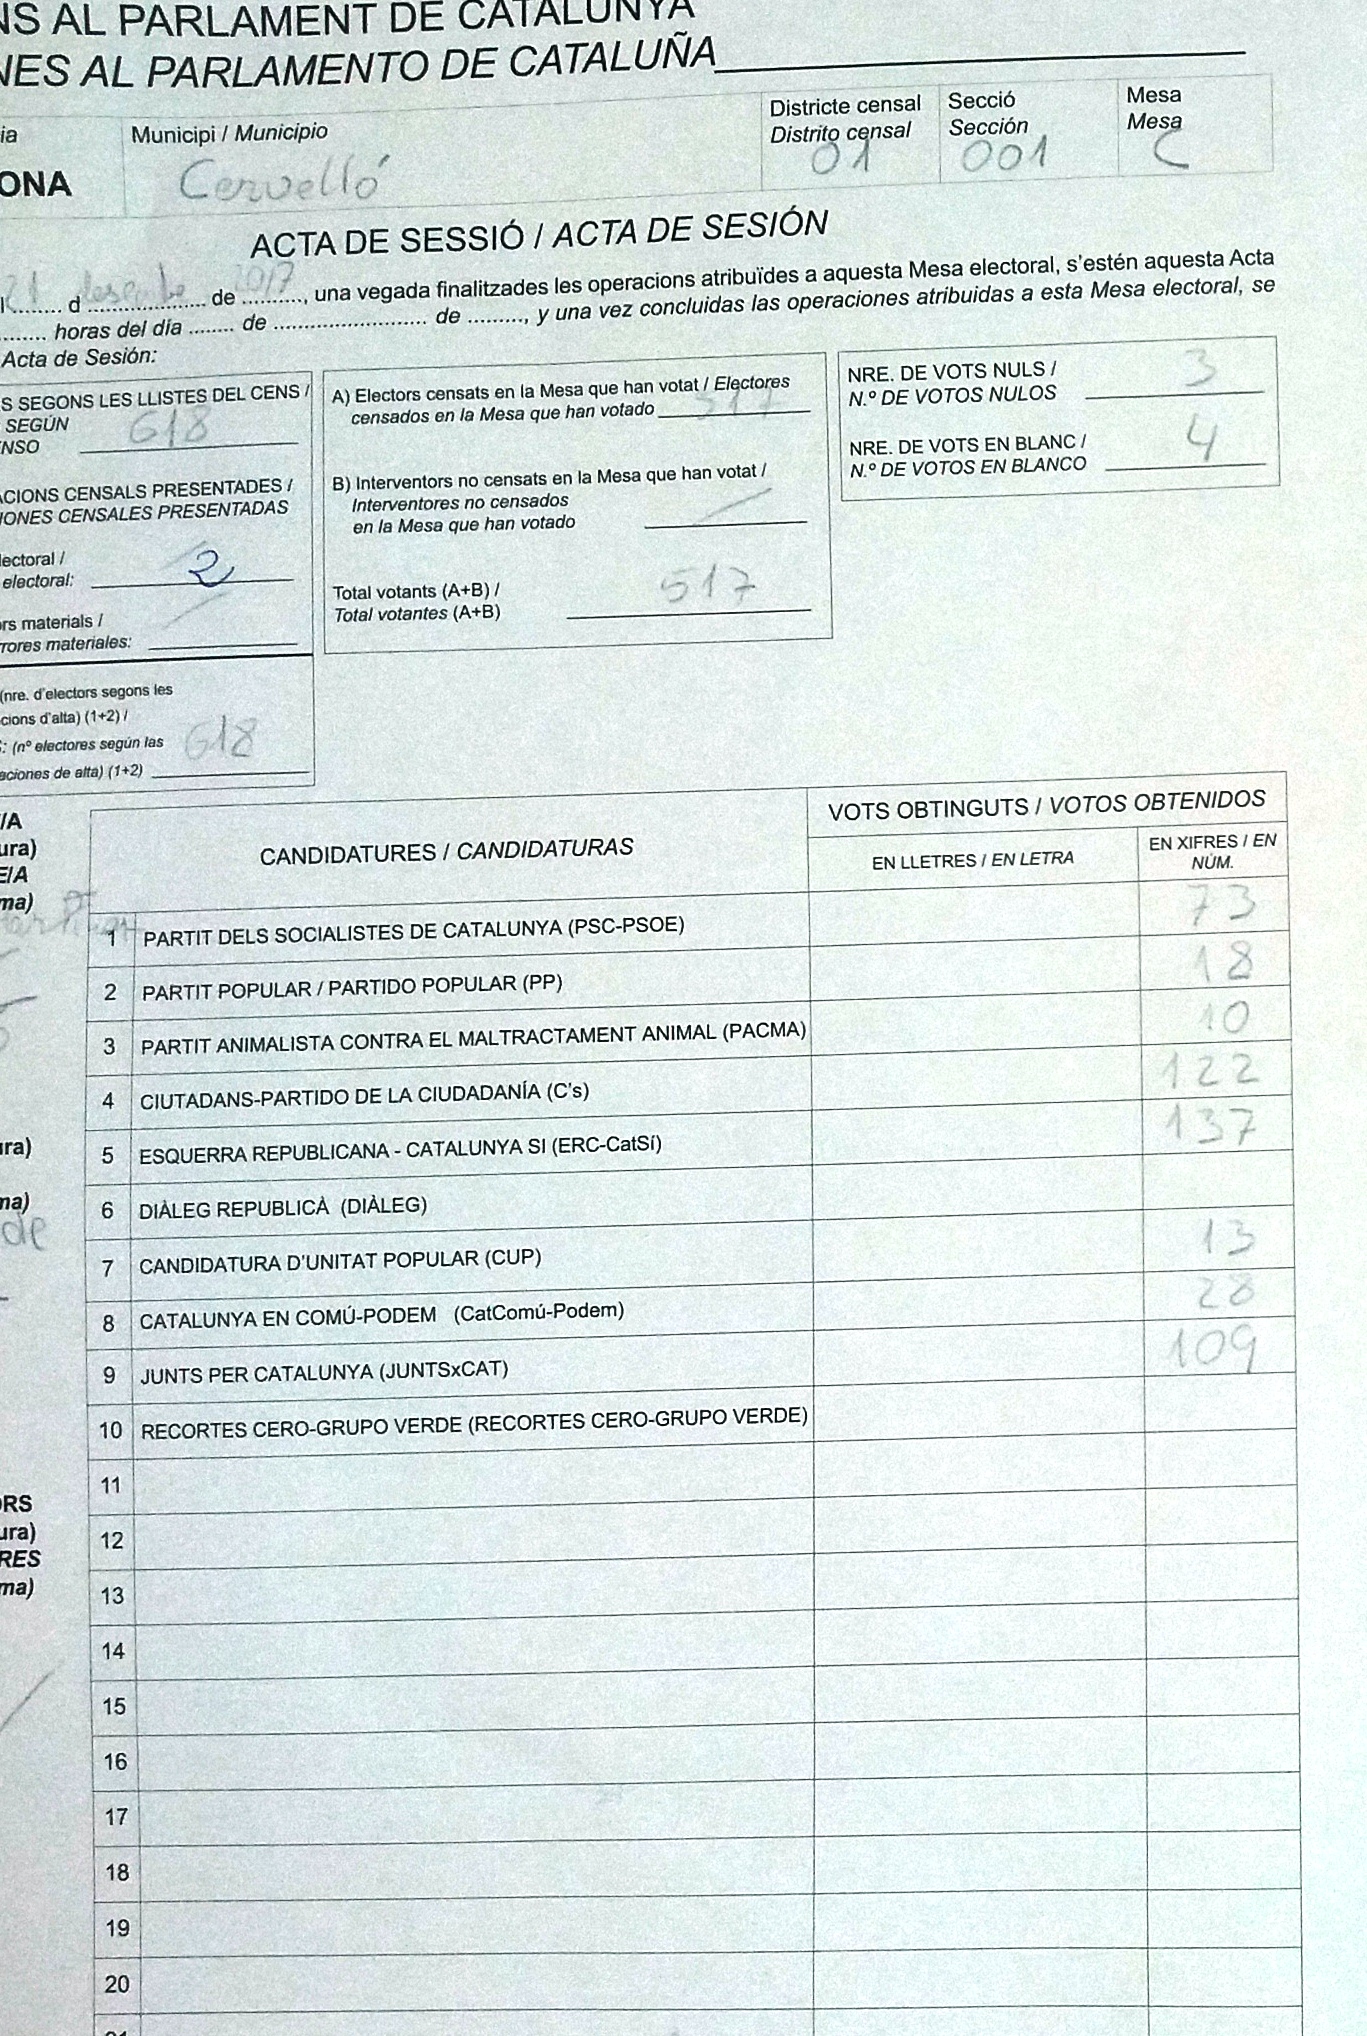 NS AL PARLAMENT DE CATALUNYA
NES AL PARLAMENTO DE CATALUÑA
ia
ONA
Municipi / Municipio
Cervelló
Districte censal
Distrito censal
01
Secció
Sección
001
Mesa
Mesa
C
ACTA DE SESSIÓ / ACTA DE SESIÓN
21 d desembe de 2017, una vegada finalitzades les operacions atribuïdes a aquesta Mesa electoral, s'estén aquesta Acta
........ horas del día ........ de ............................ de ........., y una vez concluidas las operaciones atribuidas a esta Mesa electoral, se
Acta de Sesión:
S SEGONS LES LLISTES DEL CENS /
SEGÚN
NSO 618
ACIONS CENSALS PRESENTADES /
IONES CENSALES PRESENTADAS
lectoral /
electoral: 2
ors materials /
rrores materiales:
(nre. d'electors segons les
cions d'alta) (1+2) /
: (nº electores según las
aciones de alta) (1+2) 618
A) Electors censats en la Mesa que han votat / Electores
censados en la Mesa que han votado 517
B) Interventors no censats en la Mesa que han votat /
Interventores no censados
en la Mesa que han votado
Total votants (A+B) /
Total votantes (A+B) 517
NRE. DE VOTS NULS /
N.º DE VOTOS NULOS 3
NRE. DE VOTS EN BLANC /
N.º DE VOTOS EN BLANCO 4
/A
ura)
E/A
ma)
ura)
ma)
de
ORS
ura)
RES
ma)
CANDIDATURES / CANDIDATURAS
VOTS OBTINGUTS / VOTOS OBTENIDOS
EN LLETRES / EN LETRA
EN XIFRES / EN
NÚM.
1 PARTIT DELS SOCIALISTES DE CATALUNYA (PSC-PSOE) 73
2 PARTIT POPULAR / PARTIDO POPULAR (PP) 18
3 PARTIT ANIMALISTA CONTRA EL MALTRACTAMENT ANIMAL (PACMA) 10
4 CIUTADANS-PARTIDO DE LA CIUDADANÍA (C's) 122
5 ESQUERRA REPUBLICANA - CATALUNYA SI (ERC-CatSí) 137
6 DIÀLEG REPUBLICÀ (DIÀLEG)
7 CANDIDATURA D'UNITAT POPULAR (CUP) 13
8 CATALUNYA EN COMÚ-PODEM (CatComú-Podem) 28
9 JUNTS PER CATALUNYA (JUNTSxCAT) 109
10 RECORTES CERO-GRUPO VERDE (RECORTES CERO-GRUPO VERDE)
11
12
13
14
15
16
17
18
19
20